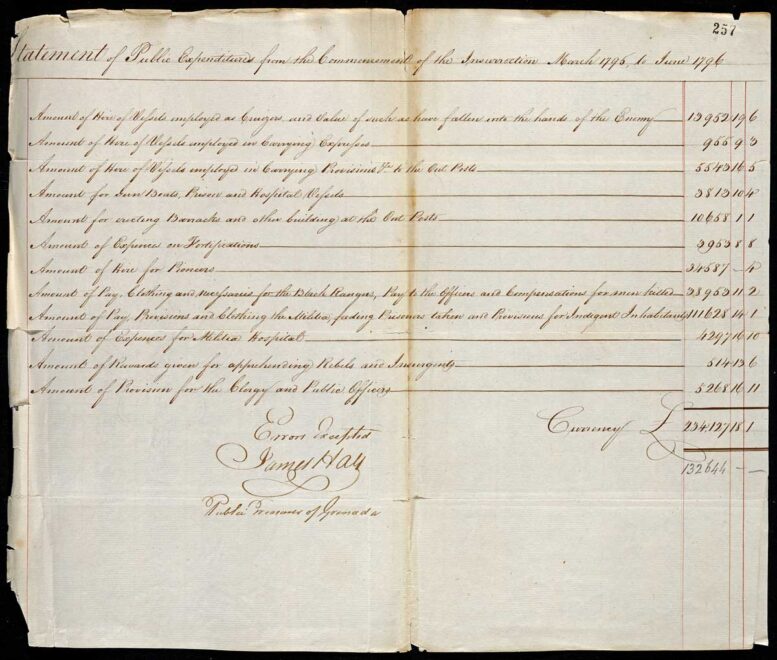 257
Statement of Public Expenditures from the Commencement of the Insurrection March 1795, to June 1796
Amount of Hire of Vessels employed as Cruizers, and Value of such as have fallen into the hands of the Enemy 13952 19 6
Amount of Hire of Vessels employed in Carrying Expresses 955 9 3
Amount of Hire of Vessels employed in Carrying Provisions &c to the Out Posts 5543 16 5
Amount for Gun Boats, Prison and Hospital Vessels 3813 10 4
Amount for erecting Barracks and other building at the Out Posts 10658 1 1
Amount of Expences on Fortifications 3953 8 8
Amount of Hire for Pioneers 34587 - 4
Amount of Pay, Clothing and necessaries for the Black Rangers, Pay to the Officers and Compensations for men killed 38953 11 2
Amount of Pay, Provisions and Clothing the Militia, feeding Prisoners taken and Provisions for Indigent Inhabitants 111628 14 1
Amount of Expences for Militia Hospital 4297 16 10
Amount of Rewards given for apprehending Rebels and Insurgents 514 13 6
Amount of Provision for the Clergy and Public Officers 5268 16 11
Errors Excepted Currency £ 234127 18 1
James Hay 132644 - -
Public Treasurer of Grenada